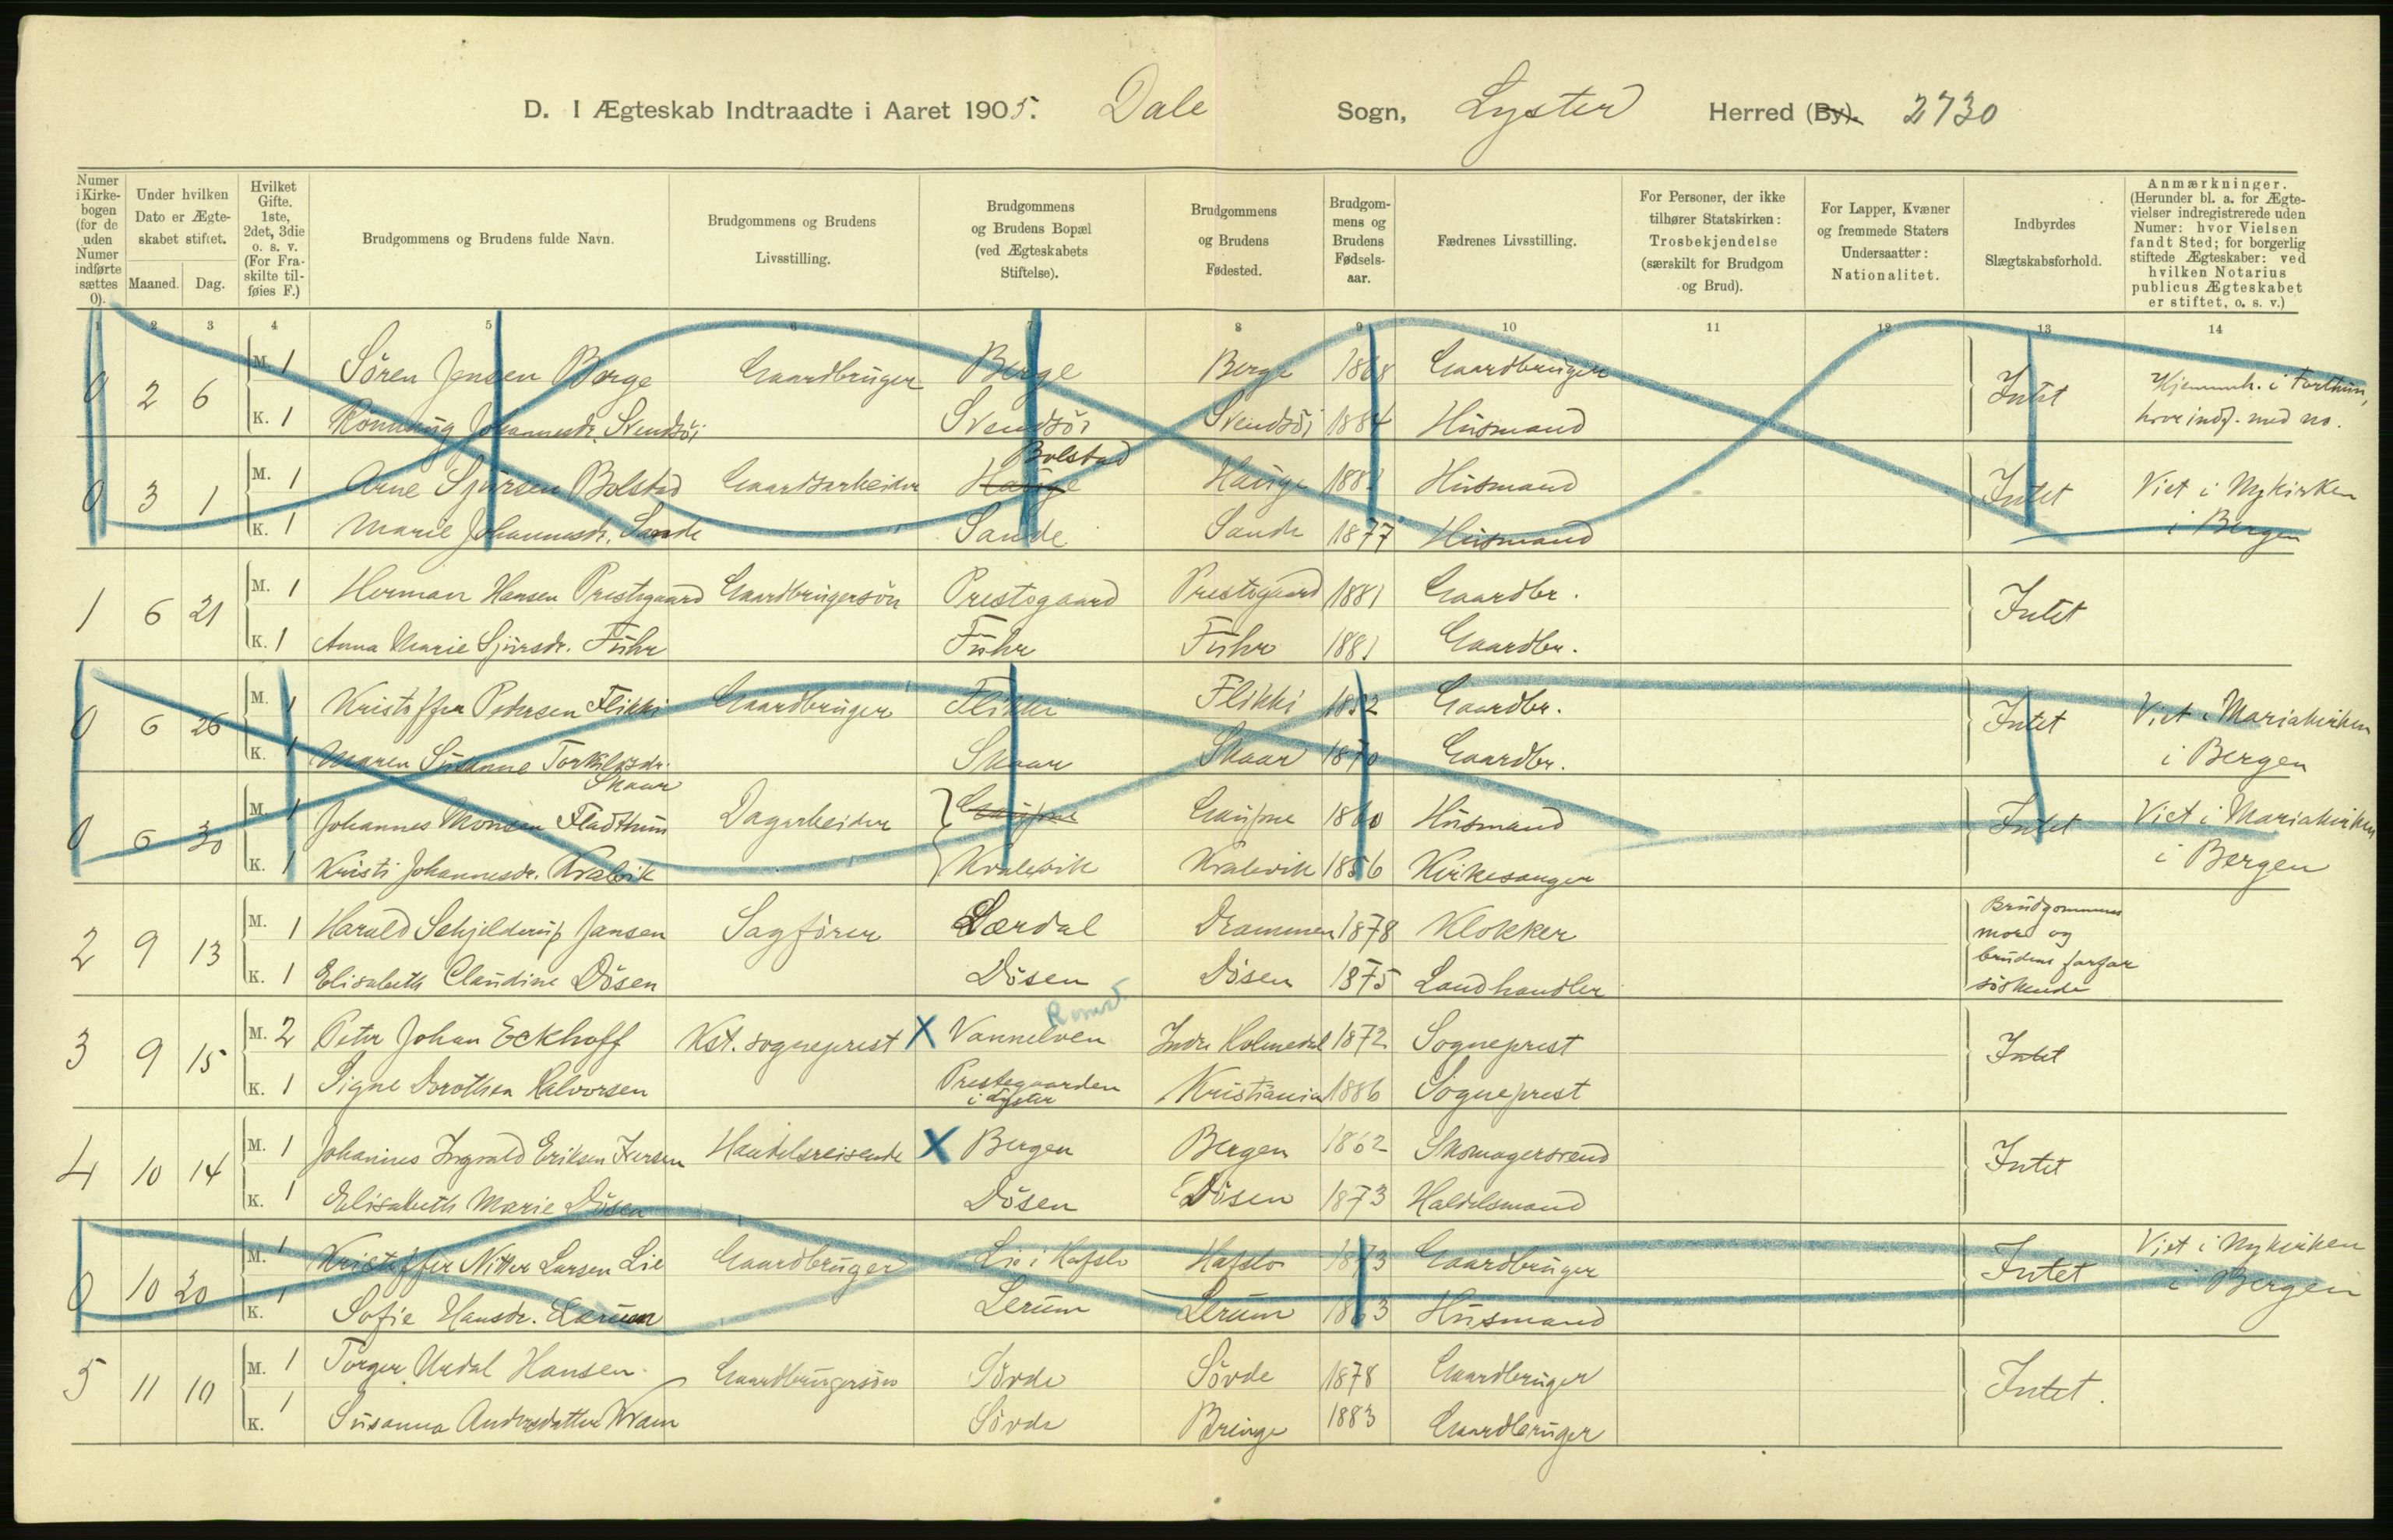 D. I Ægteskab Indtraadte i Aaret 1905. Dale Sogn, Lyster Herred (By). 2730
Numer i Kirkebogen (for de uden Numer indførte sættes 0).
Under hvilken Dato er Ægteskabet stiftet.
Maaned. Dag.
Hvilket Gifte. 1ste, 2det, 3die o. s. v. (For Fraskilte tilføies F.)
Brudgommens og Brudens fulde Navn.
Brudgommens og Brudens Livsstilling.
Brudgommens og Brudens Bopæl (ved Ægteskabets Stiftelse).
Brudgommens og Brudens Fødested.
Brudgommens og Brudens Fødselsaar.
Fædrenes Livsstilling.
For Personer, der ikke tilhører Statskirken: Trosbekjendelse (særskilt for Brudgom og Brud).
For Lapper, Kvæner og fremmede Staters Undersaatter: Nationalitet.
Indbyrdes Slægtskabsforhold.
Anmærkninger. (Herunder bl. a. for Ægtevielser indregistrerede uden Numer: hvor Vielsen fandt Sted; for borgerlig stiftede Ægteskaber: ved hvilken Notarius publicus Ægteskabet er stiftet, o. s. v.)
1 2 3 4 5 6 7 8 9 10 11 12 13 14
0 2 6 M. 1 Sören Jensen Berge Gaardbruger Berge Berge 1868 Gaardbruger Intet Hjemmeh. i Forthun,
K. 1 Johannesdr. Svendsöi Svendsöi Svendsöi 1884 Husmand hvor indf. med no.
Bolstad
0 3 1 M. 1 Arne Sjursen Bolstad Gaardsarbeider Hauge Hauge 1881 Husmand Intet Viet i Nykirken
K. 1 Marie Johannesdr. Sande Sande Sande 1877 Husmand i Bergen
1 6 21 M. 1 Herman Hansen Prestegaard Gaardbrugersön Prestegaard Prestegaard 1881 Gaardbr. Intet
K. 1 Anna Marie Sjursdr. Fuhr Fuhr Fuhr 1881 Gaardbr.
0 6 26 M. 1 Kristoffer Pedersen Flikki Gaardbruger Flikki Flikki 1852 Gaardbr. Intet Viet i Mariakirken
K. 1 Maren Susanne Torkildsdr. Skaar Skaar 1870 Gaardbr. i Bergen
Skaar
0 6 30 M. 1 Johannes Monsen Fladthun Dagarbeider Gaupne Gaupne 1860 Husmand Intet Viet i Mariakirken
K. 1 Kristi Johannesdr. Kvalvik Kvalevik Kvalevik 1856 Kirkesanger i Bergen
2 9 13 M. 1 Harald Schjelderup Jansen Sagförer Lærdal Drammen 1878 Klokker Brudgommens mor og
K. 1 Elisabeth Claudine Dösen Dösen Dösen 1875 Landhandler brudens farfar söskende
3 9 15 M. 2 Peter Johan Eckhoff Kst. sogneprest X Vannelven Indre Holmedal 1872 Sogneprest Intet
K. 1 Signe Dorothea Halvorsen Prestegaarden i Lyster Kristiania 1886 Sogneprest
4 10 14 M. 1 Johannes Ingvald Eriksen Iversen Handelsreisende X Bergen Bergen 1862 Skomagersvend Intet
K. 1 Elisabeth Marie Dösen Dösen Dösen 1873 Haldelsmand
0 10 20 M. 1 Kristoffer Nitter Larsen Lie Gaardbruger Lie i Hafslo Hafslo 1873 Gaardbruger Intet Viet i Nykirken
K. 1 Sofie Hansdr. Lerum Lerum Lerum 1863 Husmand i Bergen
5 11 10 M. 1 Torger Urdal Hansen Gaardbrugersön Sövde Sövde 1878 Gaardbruger Intet.
K. 1 Susanna Andersdatter Kvam Sövde Bringe 1883 Gaardbruger